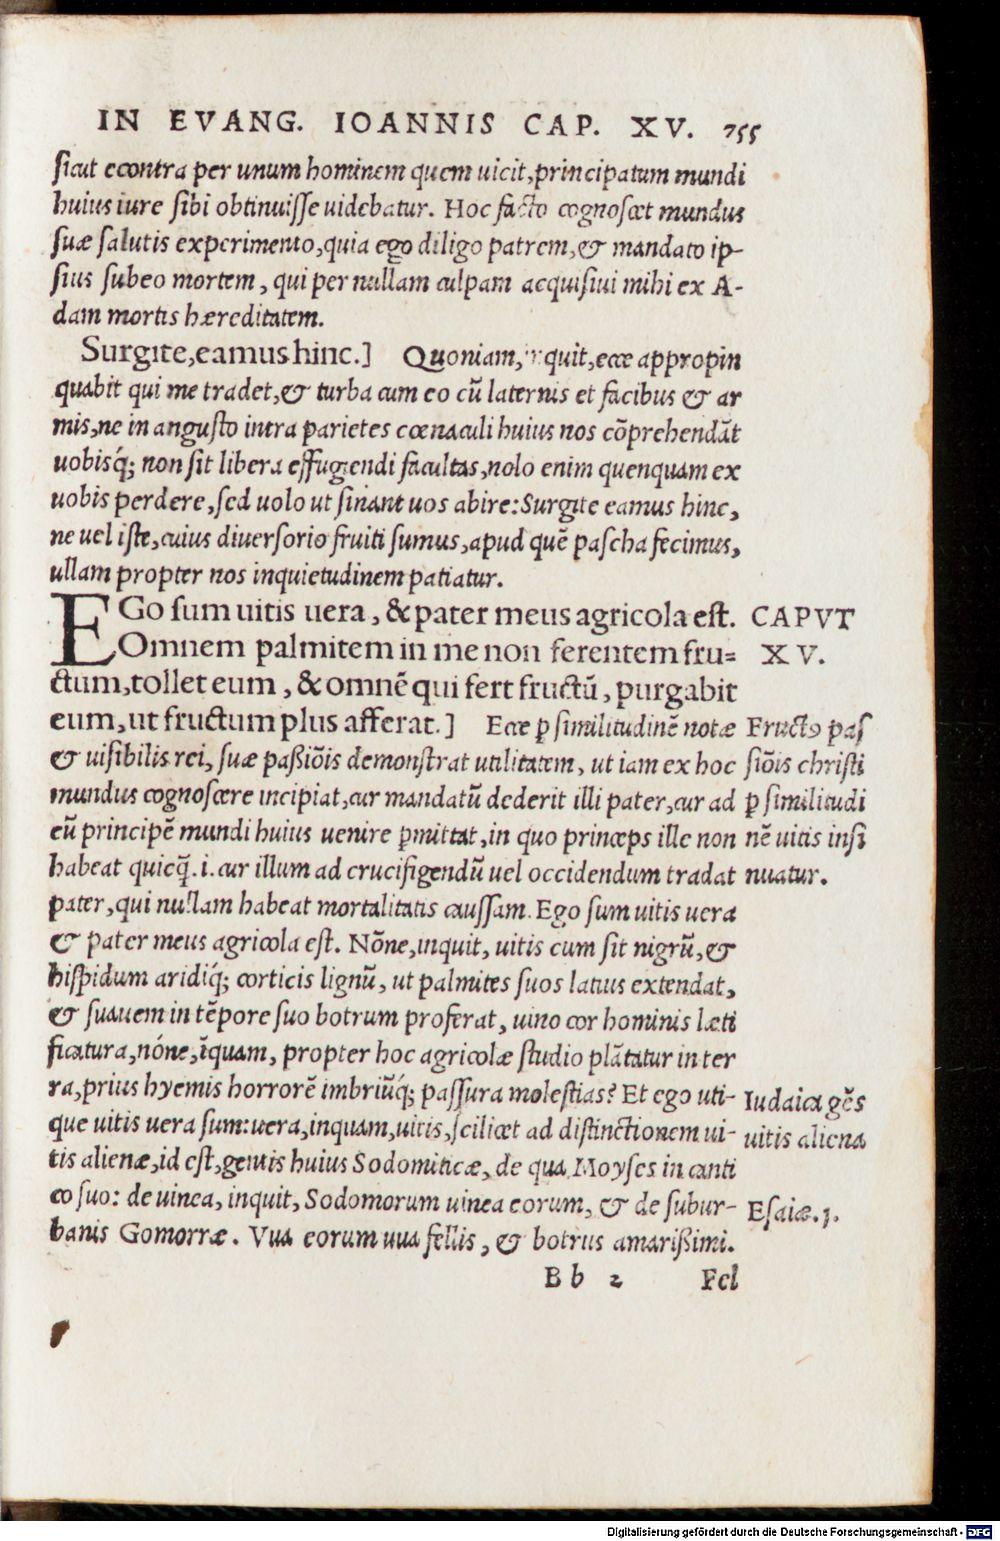 IN EVANG. IOANNIS CAP. XV. 755
sicut econtra per unum hominem quem uicit, principatum mundi
huius iure sibi obtinuisse uidebatur. Hoc facto cognoscet mundus
suæ salutis experimento, quia ego diligo patrem, & mandato ip-
sius subeo mortem, qui per nullam culpam acquisiui mihi ex A-
dam mortis hæreditatem.
Surgite, eamus hinc.] Quoniam, quit, ecce appropin
quabit qui me tradet, & turba cum eo cū laternis et facibus & ar
mis, ne in angusto intra parietes cœnaculi huius nos cōprehendāt
uobisq́; non sit libera effugiendi facultas, nolo enim quenquam ex
uobis perdere, sed uolo ut sinant uos abire: Surgite eamus hinc,
ne uel iste, cuius diuersorio fruiti sumus, apud quē pascha fecimus,
ullam propter nos inquietudinem patiatur.
EGo sum uitis uera, & pater meus agricola est.
CAPVT
Omnem palmitem in me non ferentem fru=
XV.
ctum, tollet eum, & omnē qui fert fructū, purgabit
eum, ut fructum plus afferat.] Ecce ꝑ similitudinē notæ
Fructꝰ pas
& uisibilis rei, suæ paßiōis demonstrat utilitatem, ut iam ex hoc
siōis christi
mundus cognoscere incipiat, cur mandatū dederit illi pater, cur ad
ꝑ similitudi
eū principē mundi huius uenire ꝑmittat, in quo princeps ille non
nē uitis insi
habeat quicq̄. i. cur illum ad crucifigendū uel occidendum tradat
nuatur.
pater, qui nullam habeat mortalitatis caussam. Ego sum uitis uera
& pater meus agricola est. Nōne, inquit, uitis cum sit nigrū, &
hispidum aridiq́; corticis lignū, ut palmites suos latius extendat,
& suauem in tēpore suo botrum proferat, uino cor hominis læti
ficatura, nónē, īquam, propter hoc agricolæ studio plātatur in ter
ra, prius hyemis horrorē imbriūq́; passura molestias? Et ego uti-
Iudaica gēs
que uitis uera sum: uera, inquam, uitis, scilicet ad distinctionem ui-
uitis aliena
tis alienæ, id est, gentis huius Sodomiticæ, de qua Moyses in canti
co suo: de uinea, inquit, Sodomorum uinea eorum, & de subur-
Esaiæ. 1.
banis Gomorræ. Vua eorum uua fellis, & botrus amarißimi.
Bb 2 Fel
Digitalisierung gefördert durch die Deutsche Forschungsgemeinschaft - DFG